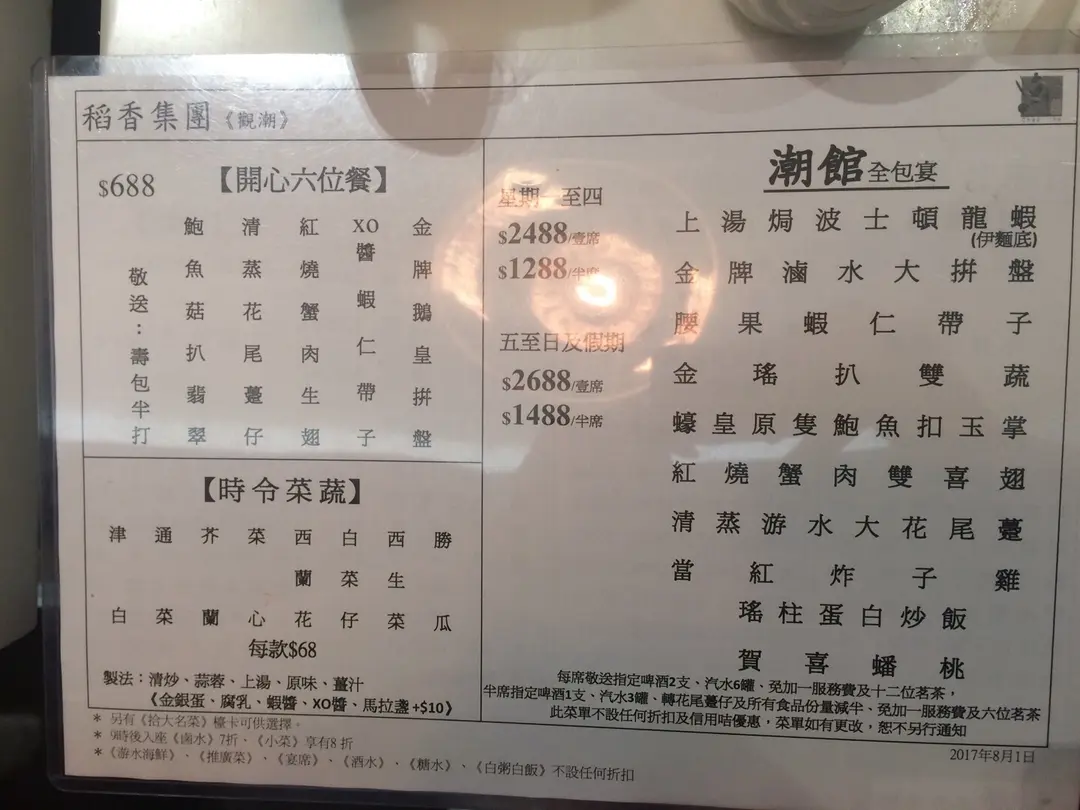 稻香集團《觀潮》
$688
【開心六位餐】
金牌鵝皇拚盤
XO醬蝦仁帶子
紅燒蟹肉生翅
清蒸花尾躉仔
鮑魚菇扒翡翠
敬送：壽包半打
【時令菜蔬】
勝瓜
西生菜
白菜仔
西蘭花
菜心
芥蘭
通菜
津白
每款$68
製法：清炒、蒜蓉、上湯、原味、薑汁
《金銀蛋、腐乳、蝦醬、XO醬、馬拉盞+$10》
潮館全包宴
星期一至四
$2488/壹席
$1288/半席
五至日及假期
$2688/壹席
$1488/半席
上湯焗波士頓龍蝦
(伊麵底)
金牌滷水大拚盤
腰果蝦仁帶子
金瑤扒雙蔬
蠔皇原隻鮑魚扣玉掌
紅燒蟹肉雙喜翅
清蒸游水大花尾躉
當紅炸子雞
瑤柱蛋白炒飯
賀喜蟠桃
每席敬送指定啤酒2支、汽水6罐、免加一服務費及十二位茗茶，
半席指定啤酒1支、汽水3罐、轉花尾躉仔及所有食品份量減半、免加一服務費及六位茗茶
此菜單不設任何折扣及信用咭優惠，菜單如有更改，恕不另行通知
* 另有《拾大名菜》檯卡可供選擇。
* 9時後入座《鹵水》7折、《小菜》享有8折
*《游水海鮮》、《推廣菜》、《宴席》、《酒水》、《糖水》、《白粥白飯》不設任何折扣
2017年8月1日